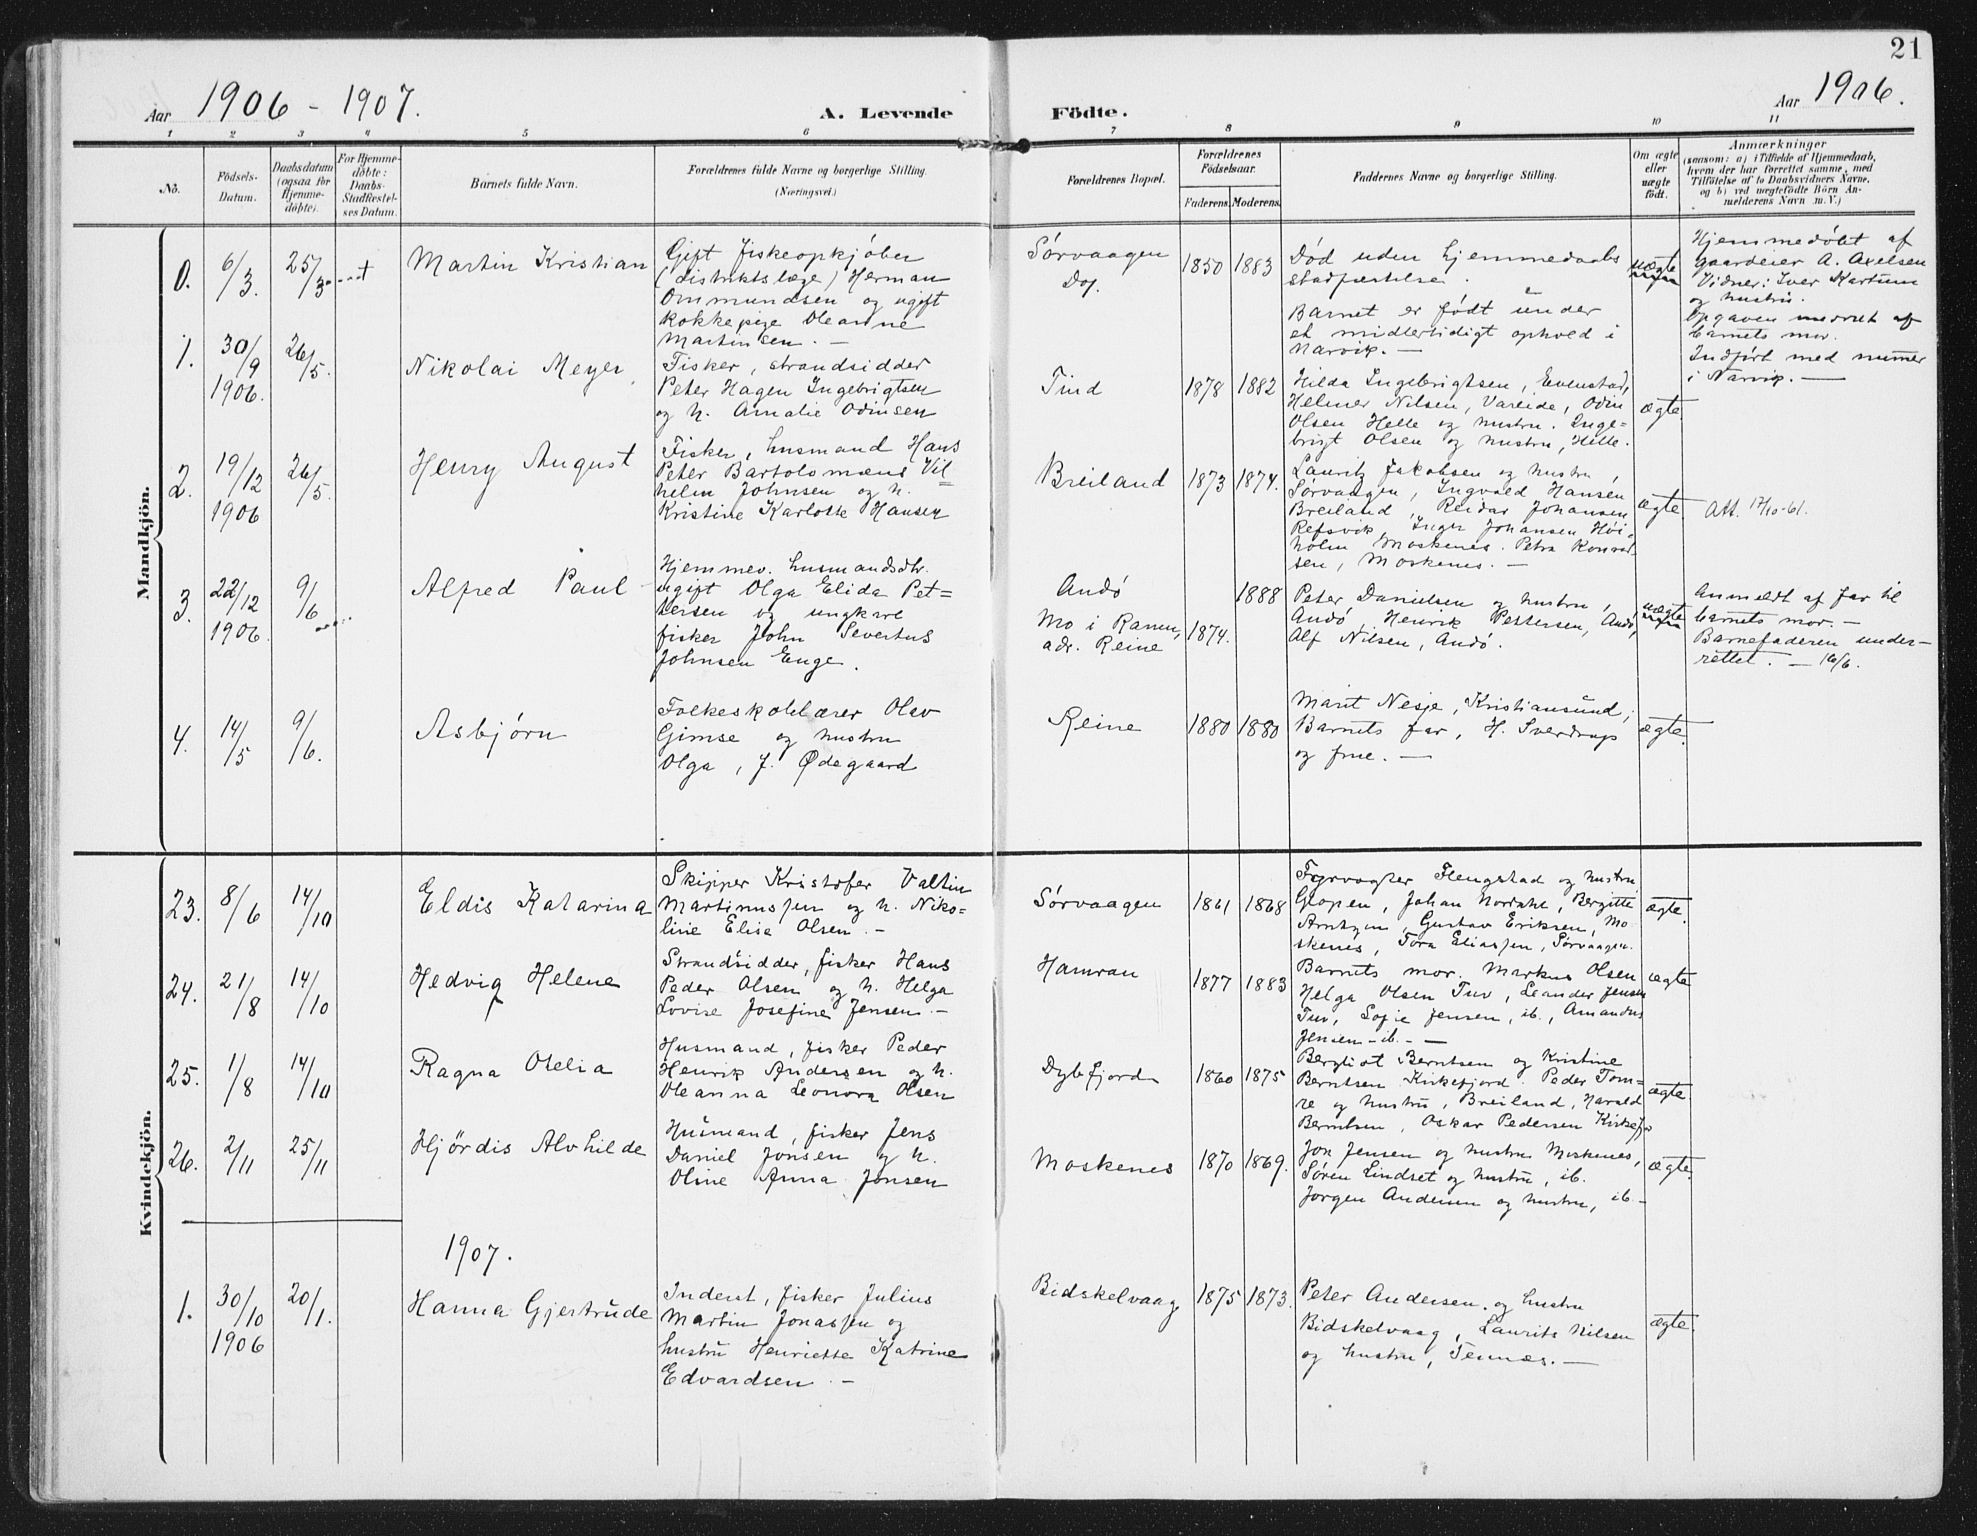 21
Aar 1906 - 1907.
A. Levende Födte.
Aar 1906.
1 2 3 4 5 6 7 8 9 10 11
No.
Födsels-
Datum.
Daabsdatum
(ogsaa for
Hjemme-
döbte).
For Hjemme-
döbte:
Daabs-
Stadfæstel-
ses Datum.
Barnets fulde Navn.
Forældrenes fulde Navne og borgerlige Stilling.
(Næringsvei.)
Forældrenes Bopæl.
Forældrenes
Födselsaar.
Faderens. Moderens.
Faddernes Navne og borgerlige Stilling.
Om ægte
eller
uægte
födt.
Anmærkninger
(saasom: a) i Tilfælde af Hjemmedaab,
hvem der har forrettet samme, med
Tilföielse af to Daabsvidners Navne,
og b) ved uægtefödte Börn An-
melderens Navn m. V.)
Mandkjön.
0. 6/3. 25/3 ---+
Martin Kristian
Gift fiskeopkjøber
(distriktslæge) Herman
Ommundsen og ugift
kokkepige Oleanne
Martinsen. —
Sørvaagen
Do.
1850 1883
Død uden hjemmedaabs
stadfæstelse.
Barnet er født under
et midlertidigt ophold i
Narvik. —
uægte
Hjemmedøbt af
gaardeier A. Axelsen
Vidner: Iver Kartum
og hustru.
Opgaven medret af
barnets mor.
Indført med numer
i Narvik. —
1. 30/9 1906. 26/5.
Nikolai Meyer,
Fisker, strandsidder
Peter Hagen Ingebrigtsen
og h. Amalie Odinsen
Tind
1878 1882
Hilda Ingebrigtsen, Evenstad,
Helmer Nilsen, Vareide, Odin
Olsen Helle og hustru. Inge=
brigt Olsen og hustru, Helle.
ægte
2. 19/12 1906 26/5.
Henry August
Fisker, husmand Hans
Peter Bartolomæus Vil=
helm Johnsen og h.
Kristine Karlotte Hansen
Breiland
1873 1874.
Lauritz Jakobsen og hustru,
Sørvaagen, Ingvald Hansen
Breiland, Reidar Johansen
Refsvik, Inger Johansen Høi-
holm Moskenes. Petra Konrad
sen, Moskenes. —
ægte
Att. 17/10-61.
3. 22/12 1906. 9/6 ....
Alfred Paul -
Hjemmev. husmandsdtr.
ugift Olga Elida Pet=
tersen og ungkarl
fisker John Severtus
Johnsen Enge.
Andø
Mo i Ranen,
adr. Reine
1874. 1888
Peter Danielsen og hustru,
Andø, Henrik Pettersen, Andø,
Alf Nilsen, Andø.
uægte
Anmeldt af far til
barnets mor. —
Barnefaderen under-
rettet. — 16/6.
4. 14/5 9/6.
Asbjørn
Folkeskolelærer Olav
Gimse og hustru
Olga, f. Ødegaard
Reine
1880 1880
Marit Nesje, Kristiansund,
Barnets far, H. Sverdrup
og frue. —
ægte.
Kvindekjön.
23. 8/6 14/10
Eldis Katarina
Skipper Kristofer Valtin
Martinussen og h. Niko=
line Elise Olsen. -
Sørvaagen
1861 1868
Fyrvogter Flengstad og hustru
Glopen, Johan Nordahl, Bergitte
Arntzen, Gustav Eriksen, Mo
skenes, Tora Eliassen, Sørvaagen.
ægte.
24. 21/8 14/10
Hedvig Helene
Strandsidder, fisker Hans
Peder Olsen og h. Helga
Lovise Josefine Jensen. -
Hamran
1877 1883
Barnets mor. Markus Olsen
Helga Olsen Tuv, Leander Jensen
Tuv, Sofie Jensen, ib., Amandus
Jensen - ib. - —
ægte
25. 1/8 14/10
Ragna Otelia
Husmand, fisker Peder
Henrik Andersen og h.
Oleanna Leonora Olsen
Dybfjord
1860 1875
Bergliot Berntsen og Kristine
Berntsen Kirkefjord. Peder Tom=
re og hustru, Breiland, Harald
Berntsen, Oskar Pedersen Kirkefjo
ægte.
26. 2/11 25/11
Hjørdis Alvhilde
Husmand, fisker Jens
Daniel Jonsen og h.
Oline Anna Jonsen
Moskenes
1870 1869.
Jon Jensen og hustru Moskenes,
Søren Lindset og hustru, ib.
Jørgen Andersen og hustru, ib. -
ægte.
1907.
1. 30/10 1906 20/1.
Hanna Gjertrude
Inderst, fisker Julius
Martin Jonassen og
hustru Henriette Katrine
Edvardsen. -
Bidskelvaag
1875 1873.
Peter Andersen og hustru
Bidskelvaag, Laurits Nilsen
og hustru, Tennæs. —
ægte.